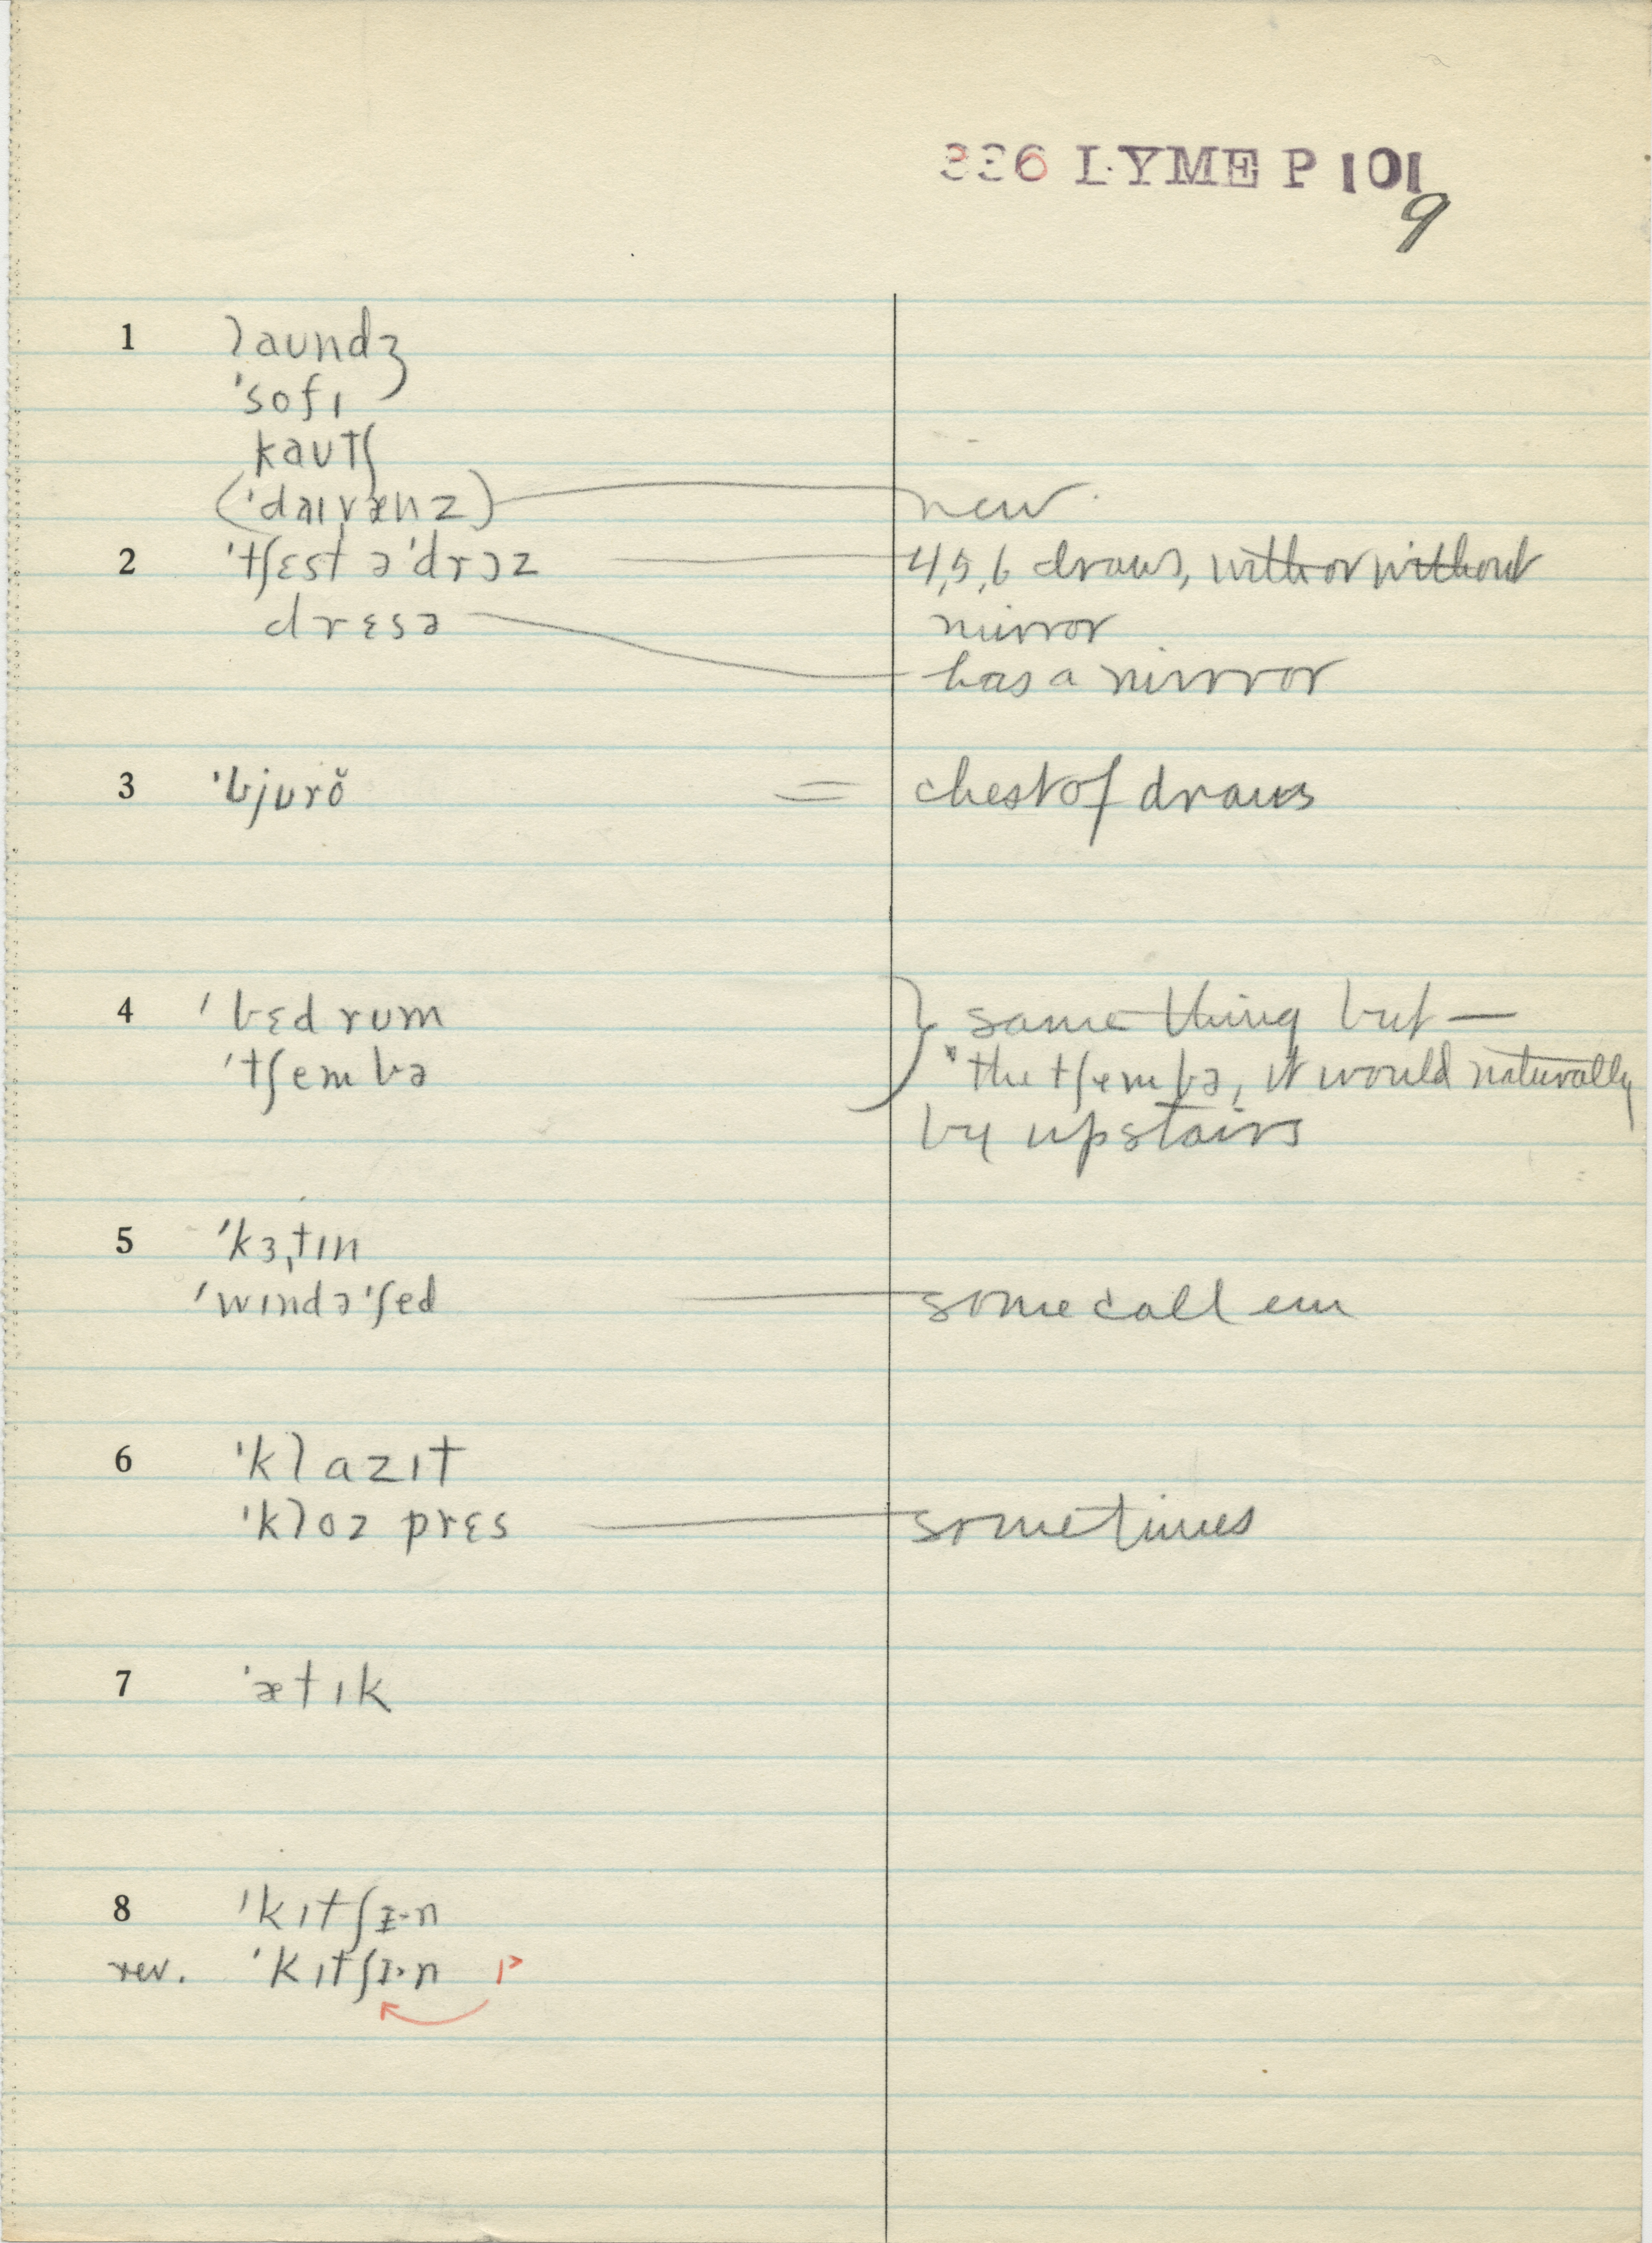 336 LYME P 101
9
1 laundʒ
ˈsofɪ
kaʊtʃ
(ˈdaɪvænz) new
2 ˈtʃɛst əˈdrɔz 4,5,6 draws, with or without
mirror
drɛsə has a mirror
3 ˈbjʊrŏ = chest of draws
4 ˈbɛdrum } same thing but —
ˈtʃembə "the tʃembə, it would naturally
by upstairs
5 ˈkɜˌtɪn
ˈwɪndəˈʃed some call em
6 ˈklazɪt
ˈkloz prɛs sometimes
7 ˈætɪk
8 ˈkɪtʃɪ-n
rev. ˈkɪtʃɪ˃n ɪ˃